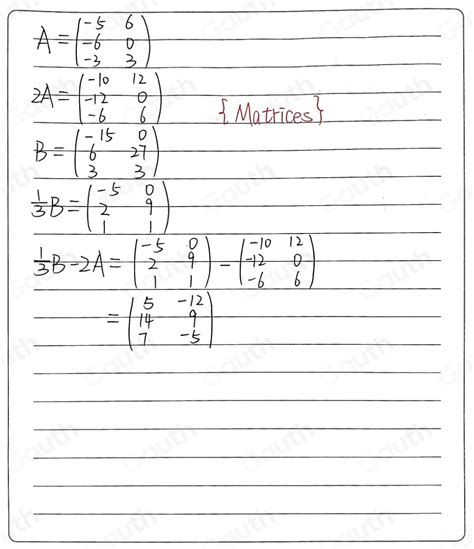 A = (-5 6
-6 0
-3 3)
2A = (-10 12
-12 0
-6 6)
{Matrices}
B = (-15 0
6 27
3 3)
1/3 B = (-5 0
2 9
1 1)
1/3 B - 2A = (-5 0
2 9
1 1) - (-10 12
-12 0
-6 6)
= (5 -12
14 9
7 -5)
Gauth